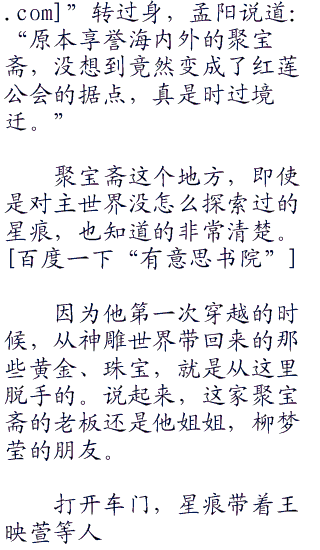 .com]”转过身，孟阳说道：
“原本享誉海内外的聚宝
斋，没想到竟然变成了红莲
公会的据点，真是时过境
迁。”
聚宝斋这个地方，即使
是对主世界没怎么探索过的
星痕，也知道的非常清楚。
[百度一下“有意思书院”]
因为他第一次穿越的时
候，从神雕世界带回来的那
些黄金、珠宝，就是从这里
脱手的。说起来，这家聚宝
斋的老板还是他姐姐，柳梦
莹的朋友。
打开车门，星痕带着王
映萱等人